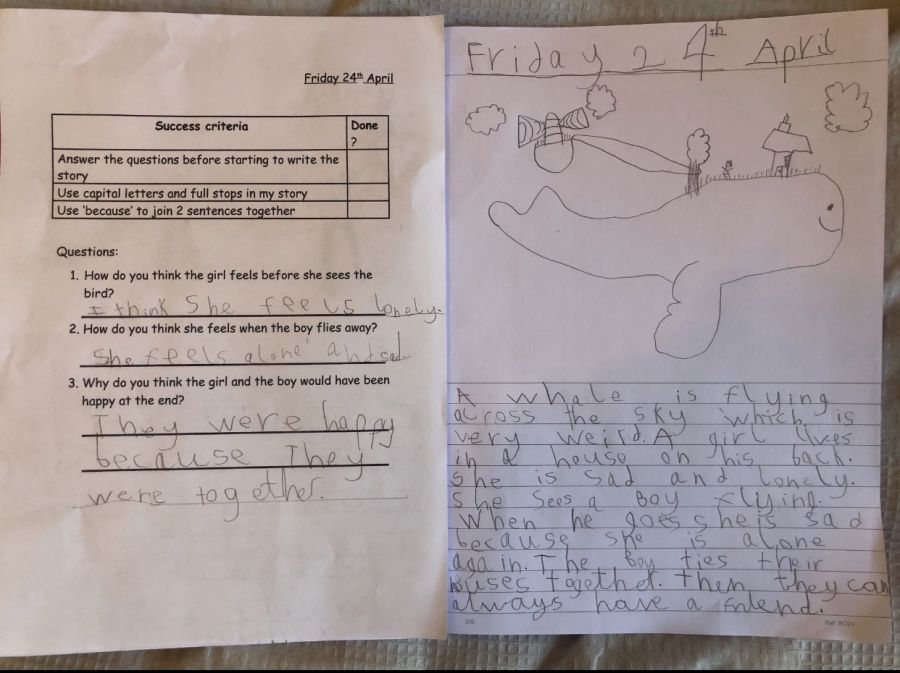 Friday 24th April
Success criteria Done
?
Answer the questions before starting to write the
story
Use capital letters and full stops in my story
Use 'because' to join 2 sentences together
Questions:
1. How do you think the girl feels before she sees the
bird?
I think She feels lonely.
2. How do you think she feels when the boy flies away?
She feels alone and sad.
3. Why do you think the girl and the boy would have been
happy at the end?
They were happy
because They
were together.
Friday 24th April
A whale is flying
across the sky which is
very weird. A girl lives
in a house on his back.
She is sad and lonely.
She sees a Boy flying.
When he goes she is sad
because she is alone
again. The Boy ties their
houses together. then they can
always have a friend.
216
Ref: BC04